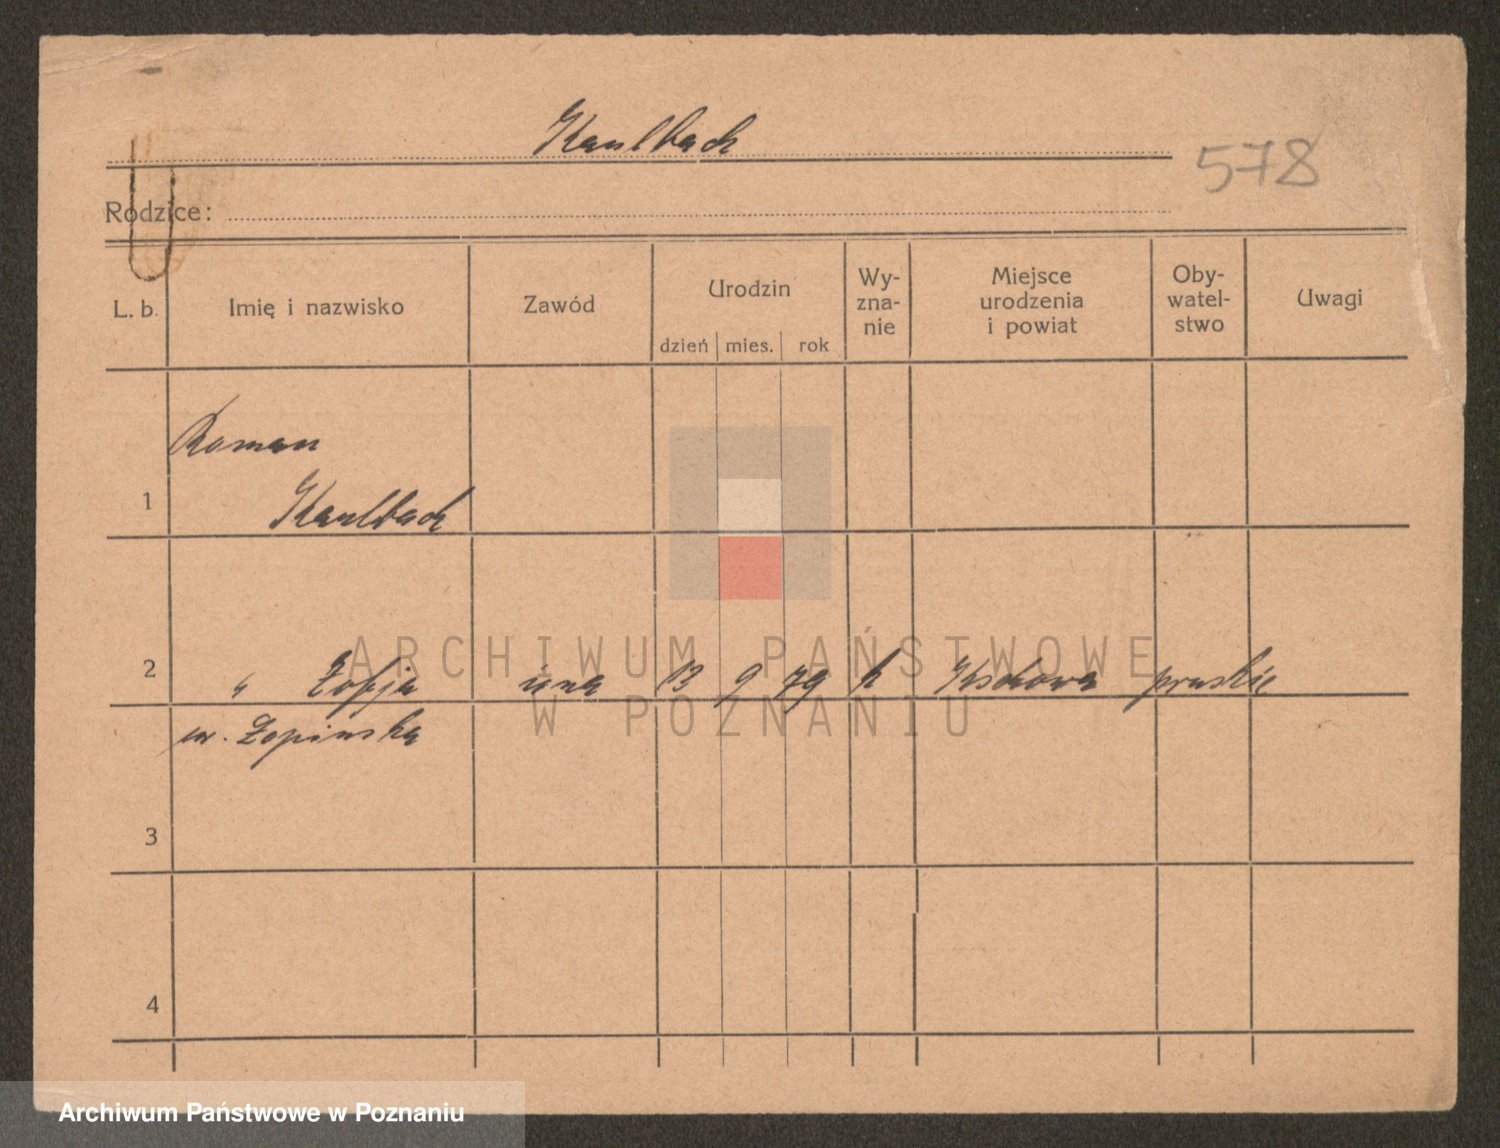 Kaulbach
578
Rodzice:
L. b. Imię i nazwisko Zawód Urodzin Wy-zna-nie Miejsce urodzenia i powiat Oby-watel-stwo Uwagi
dzień mies. rok
Roman
1 Kaulbach
ARCHIWUM PAŃSTWOWE
2 " Zofja 13 9 79 k pruskie
W POZNANIU
ur. Łopińska
3
4
Archiwum Państwowe w Poznaniu